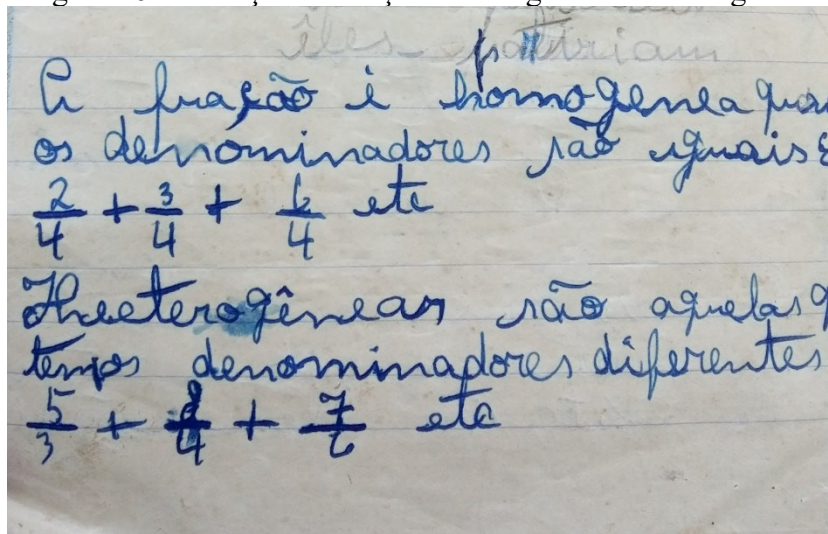 êles
A fração é homogenea
os denominadores são iguais
2/4 + 3/4 + 6/4 etc
Heeterogêneas são aquelas
temos denominadores diferentes
5/3 + /4 + 7/6 etc